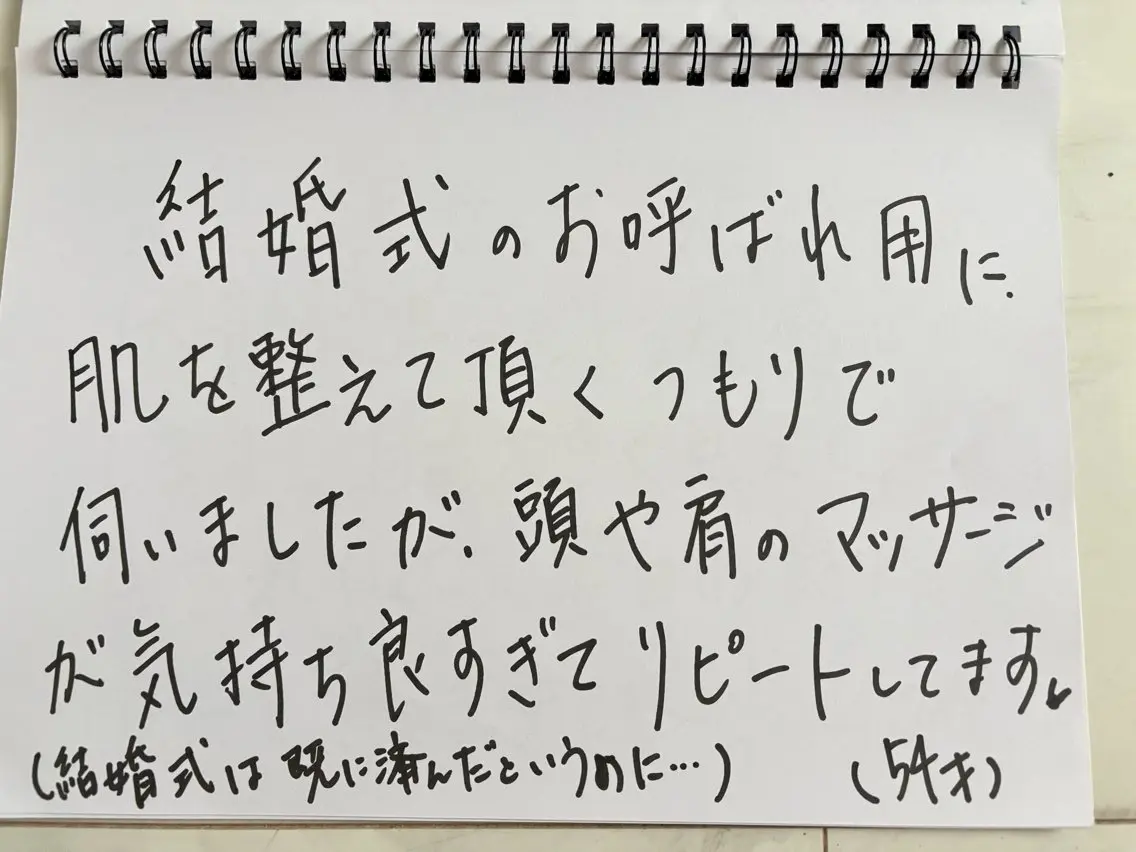 結婚式のお呼ばれ用に、
肌を整えて頂くつもりで
伺いましたが、頭や肩のマッサージ
が気持ち良すぎてリピートしてます。
(結婚式は既に済んだというのに…) (54才)